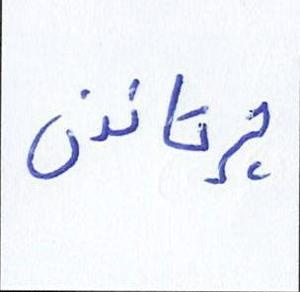 پرتاندن